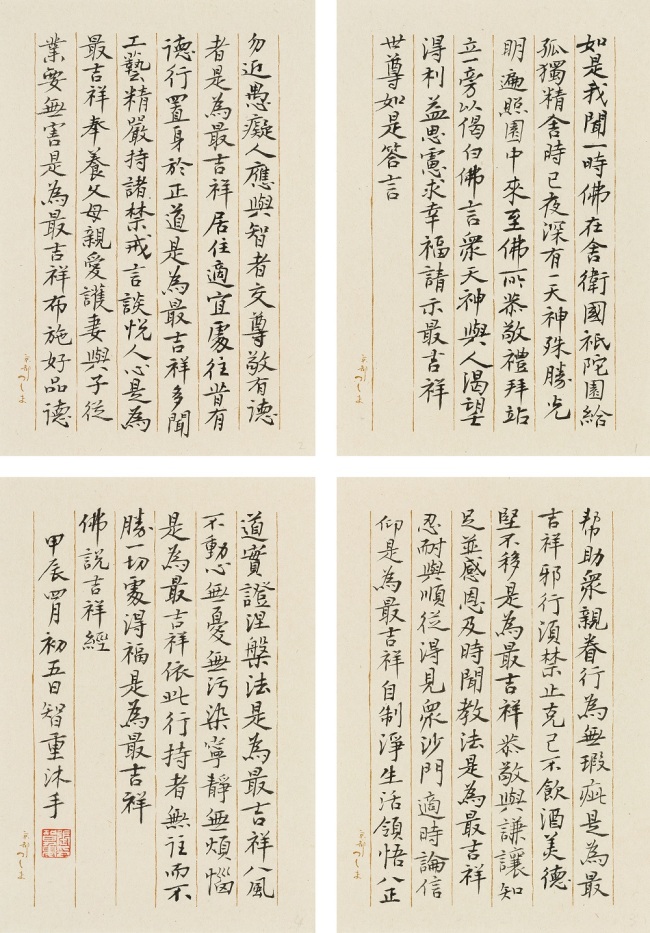 如是我聞一時佛在舍衛國祇陀園給
孤獨精舍時已夜深有一天神殊勝光
明遍照園中來至佛所恭敬禮拜站
立一旁以偈白佛言眾天神與人渴望
得利益思慮求幸福請示最吉祥
世尊如是答言
勿近愚癡人應與智者交尊敬有德
者是為最吉祥居住適宜處往昔有
德行置身於正道是為最吉祥多聞
工藝精嚴持諸禁戒言談悅人心是為
最吉祥奉養父母親愛護妻與子從
業要無害是為最吉祥布施好品德
幫助眾親眷行為無瑕疵是為最
吉祥邪行須禁止克己不飲酒美德
堅不移是為最吉祥恭敬與謙讓知
足並感恩及時聞教法是為最吉祥
忍耐與順從得見眾沙門適時論信
仰是為最吉祥自制淨生活領悟八正
道實證涅槃法是為最吉祥八風
不動心無憂無污染寧靜無煩惱
是為最吉祥依此行持者無往而不
勝一切處得福是為最吉祥
佛說吉祥經
甲辰四月初五日智重沐手